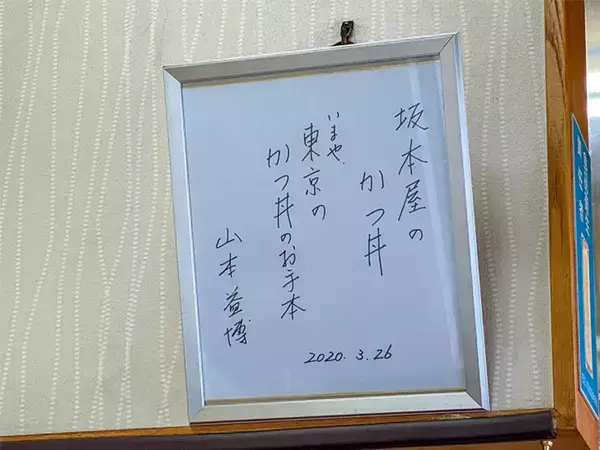 坂本屋の
かつ丼
いまや、
東京の
かつ丼のお手本
山本益博
2020.3.26